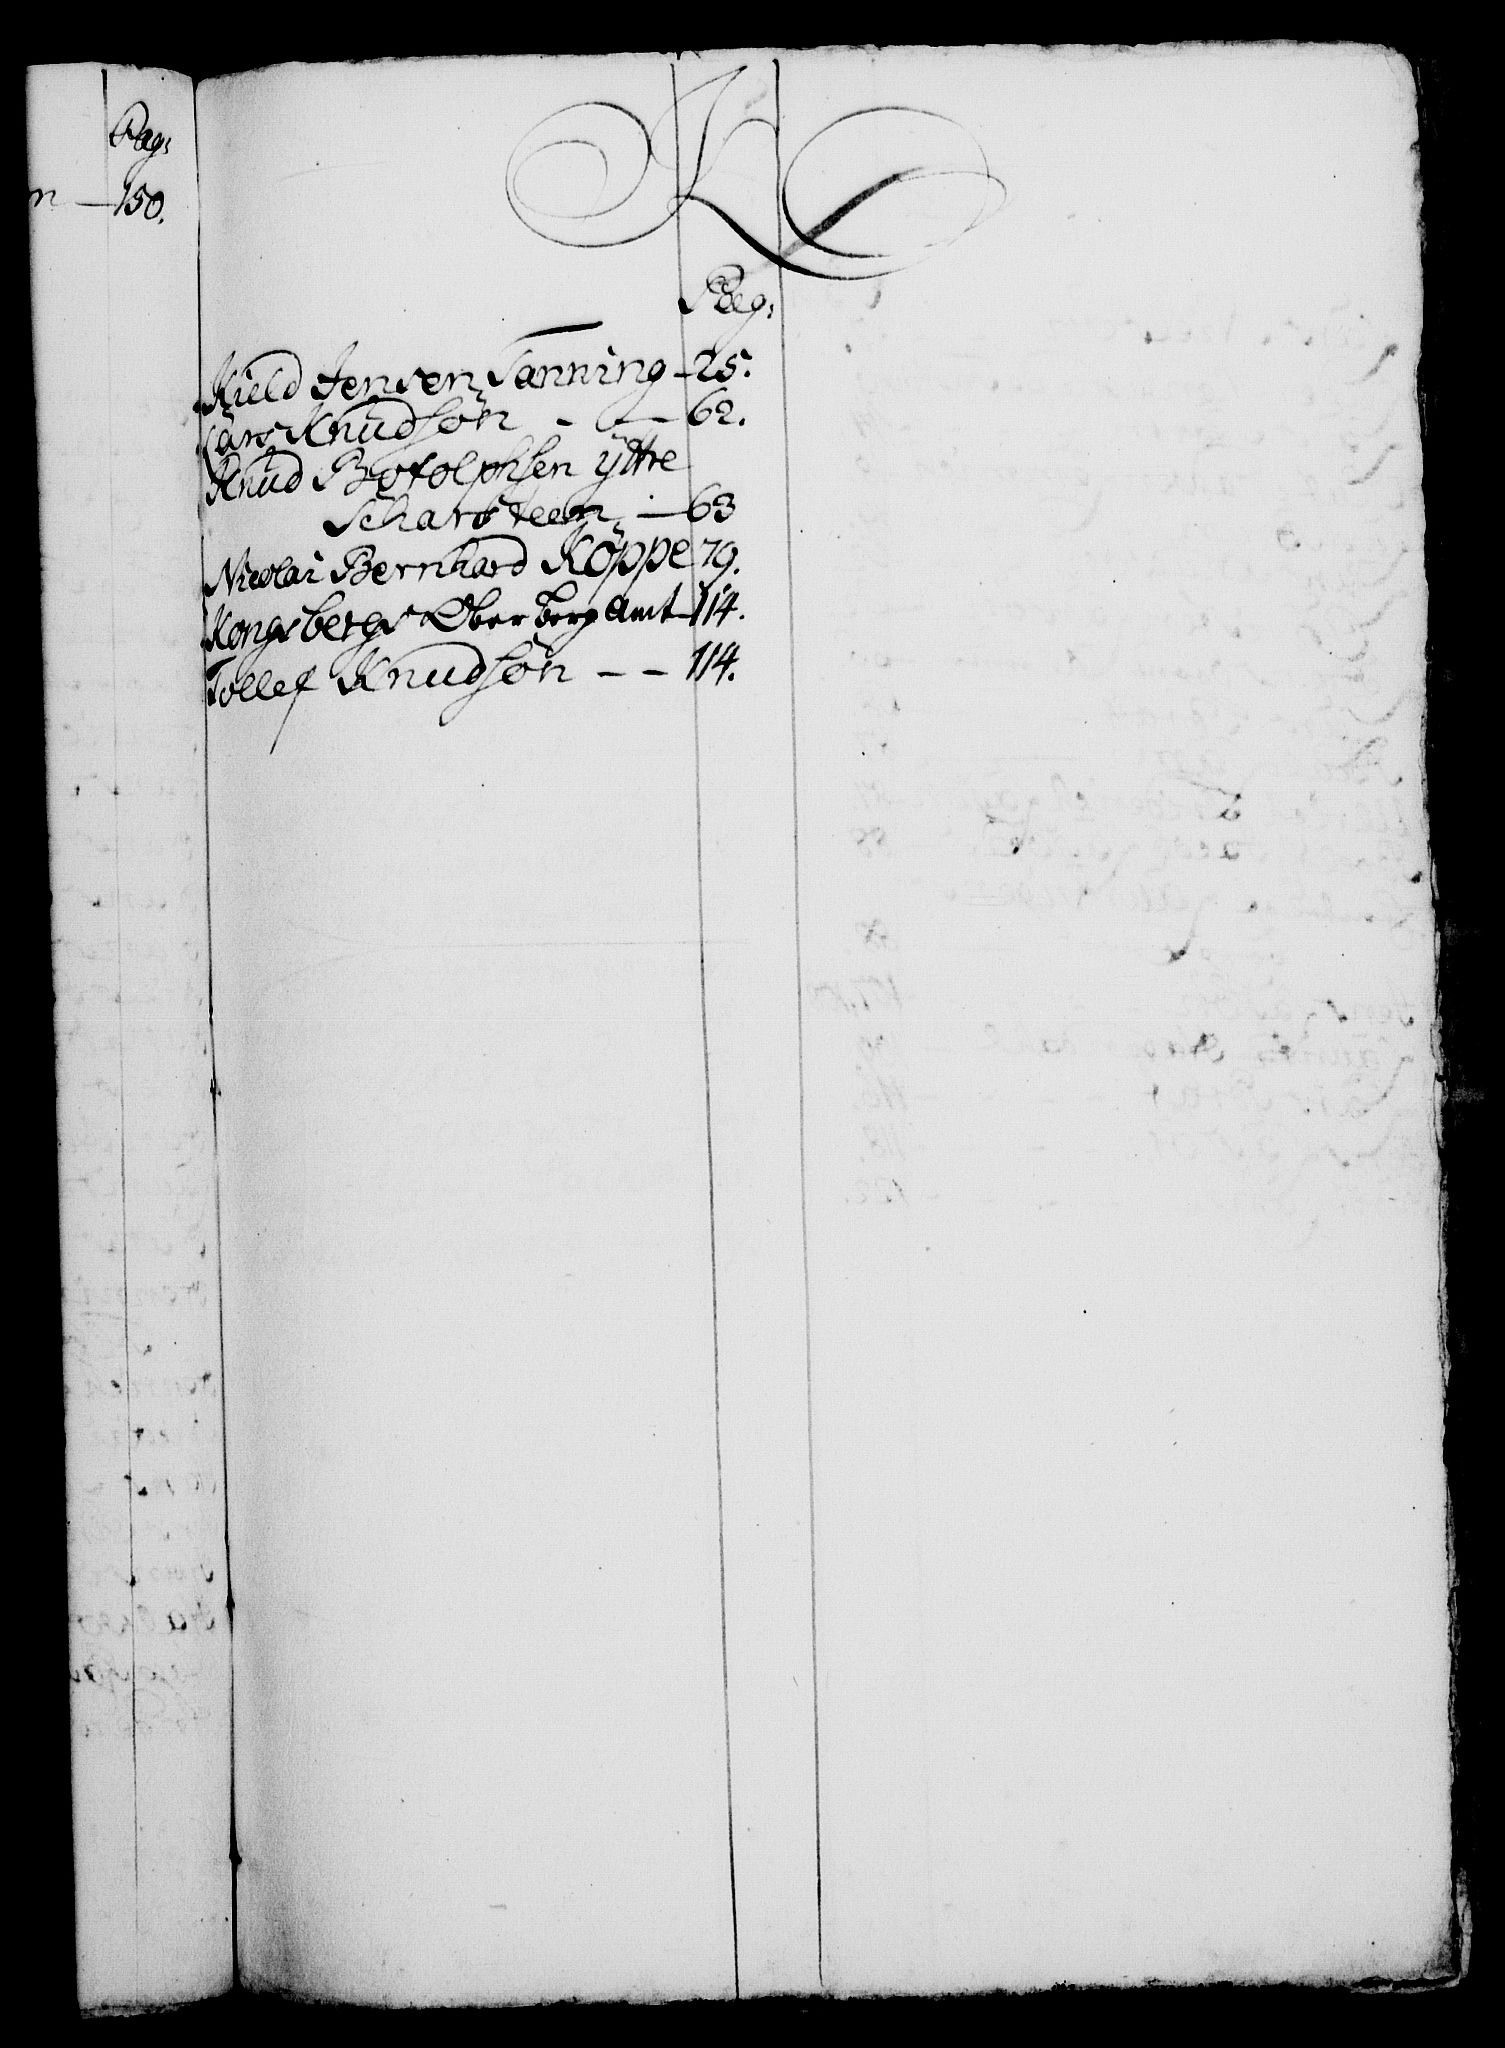 Pag:
n — 150.
K
Pag:
Kield Jensen Tanning — 25.
Lars Knudsøn - — 62.
Knud Botolphsen ÿttre
Scharsteen — 63
Nicolai Bernhard Køppe 79.
Kongsbergs Ober Berg Amt — 114.
Tollef Knudsøn - - 114.